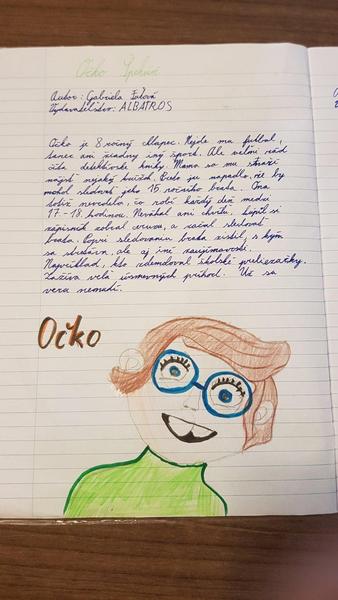 Očko Špehúň
Autor: Gabriela Futová
Vydavateľstvo: ALBATROS
Očko je 8 ročný chlapec. Nejde mu futbal,
tanec ani žiadny iný šport. Ale veľmi rád
číta detektívske knihy. Mama sa mu snaží
nájsť nejaký krúžok. Preto ju napadlo, že by
mohol sledovať jeho 15 ročného brata. Ona
totiž nevedela, čo robí každý deň medzi
17.-18. hodinou. Neváhal ani chvíľu. Kúpil si
zápisník zobral ceruzu, a začal sledovať
brata. Popri sledovaní brata zistil, s kým
sa stretáva, ale aj iné zaujímavosti.
Napríklad, kto zdemoloval školské preliezačky.
Zažíva veľa úsmevných príhod. Už sa
veru nenudí.
Očko